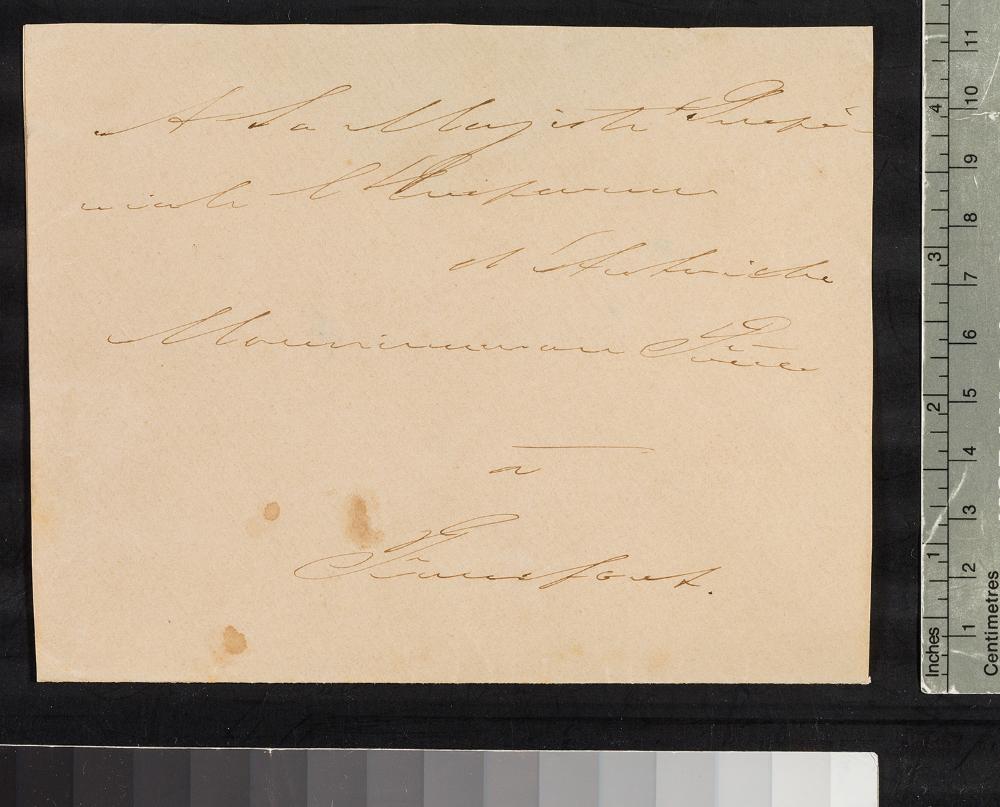 A Sa Majesté Impé-
riale l'Empereur
d'Autriche
Monsieur mon Frère
à
Francfort.
4
3
2
1
Inches
11
10
9
8
7
6
5
4
3
2
1
Centimetres